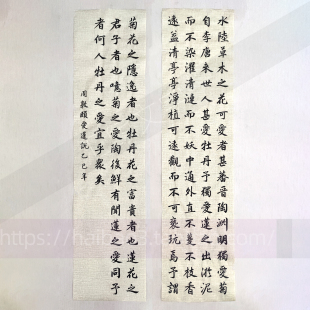 水陸草木之花可愛者甚蕃晉陶淵明獨愛菊
自李唐來世人甚愛牡丹予獨愛蓮之出淤泥
而不染濯清漣而不妖中通外直不蔓不枝香
遠益清亭亭淨植可遠觀而不可褻玩焉予謂
菊花之隱逸者也牡丹花之富貴者也蓮花之
君子者也噫菊之愛陶後鮮有聞蓮之愛同予
者何人牡丹之愛宜乎衆矣
周敦頤愛蓮說乙巳年